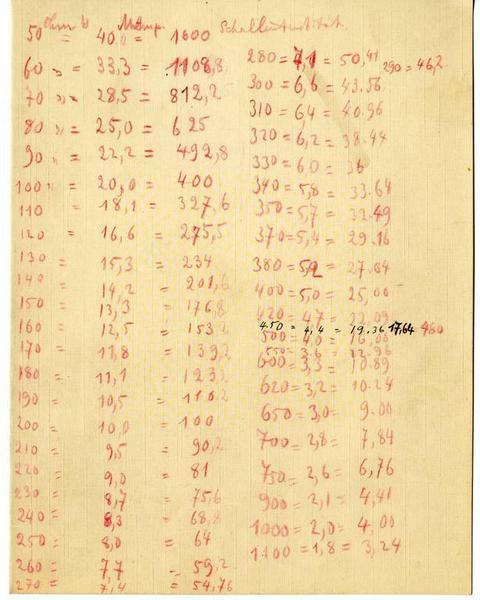 50 Ohm = 40,0 = 1600 Schallintensität
60 " = 33,3 = 1108,8
70 " = 28,5 = 812,2
80 " = 25,0 = 625
90 " = 22,2 = 492,8
100 " = 20,0 = 400
110 18,1 = 327,6
120 = 16,6 = 275,5
130 = 15,3 = 234
140 = 14,2 = 201,6
150 = 13,3 = 176,8
160 = 12,5 = 153,2
170 = 11,8 = 139,2
180 = 11,1 = 123,2
190 = 10,5 = 110,2
200 = 10,0 = 100
210 = 9,5 = 90,2
220 = 9,0 = 81
230 = 8,7 = 75,6
240 = 8,3 = 68,8
250 = 8,0 = 64
260 = 7,7 = 59,2
270 = 7,4 = 54,76
280 = 7,1 = 50,41 290 = 46,2
300 = 6,6 = 43.56
310 = 6,4 = 40.96
320 = 6,2 = 38.44
330 = 6,0 = 36
340 = 5,8 = 33.64
350 = 5,7 = 32.49
370 = 5,4 = 29.16
380 = 5,2 = 27.04
400 = 5,0 = 25,00
420 = 4,7 = 22.09
450 = 4,4 = 19.36 17,64 480
500 = 4,0 = 16,00
550 = 3.6 = 12.96
600 = 3,3 = 10.89
620 = 3,2 = 10.24
650 = 3,0 = 9.00
700 = 2,8 = 7,84
750 = 2,6 = 6,76
900 = 2,1 = 4,41
1000 = 2,0 = 4,00
1100 = 1,8 = 3,24